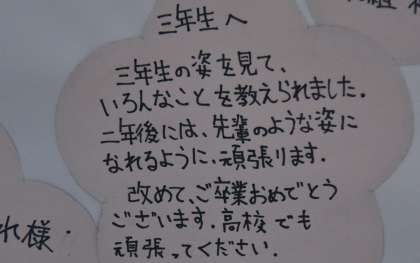 三年生へ
三年生の姿を見て、
いろんなことを教えられました.
二年後には、先輩のような姿に
なれるように、頑張ります.
改めて、ご卒業おめでとう
ございます.高校でも
頑張ってください.
れ様.